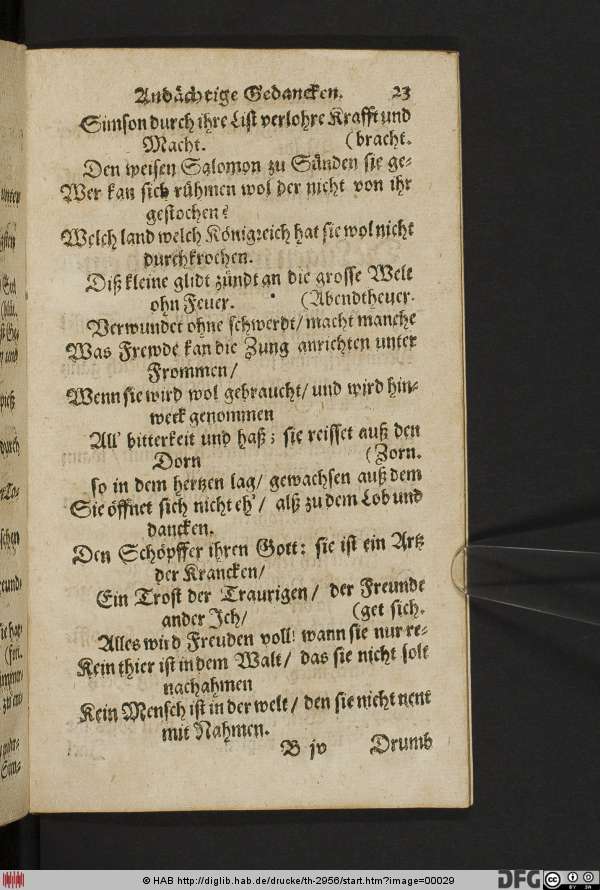 Andächtige Gedancken. 23
Simson durch ihre List verlohre Krafft und
Macht. (bracht.
Den weisen Salomon zu Sünden sie ge-
Wer kan sich rühmen wol der nicht von ihr
gestochen?
Welch land welch Königreich hat sie wol nicht
durchkrochen.
Diß kleine glidt zündt an die grosse Welt
ohn Feuer. (Abendtheuer.
Verwundet ohne schwerdt/ macht manche
Was Frewde kan die Zung anrichten unter
Frommen/
Wenn sie wird wol gebraucht/ und wird hin-
weck genommen
All' bitterkeit und haß; sie reisset auß den
Dorn (Zorn.
so in dem hertzen lag/ gewachsen auß dem
Sie öffnet sich nicht eh'/ alß zu dem Lob und
dancken.
Den Schöpffer ihren Gott: sie ist ein Artz
der Krancken/
Ein Trost der Traurigen/ der Freunde
ander Ich/ (get sich.
Alles wird Freuden voll! wann sie nur re-
Kein thier ist in dem Walt/ das sie nicht solt
nachahmen
Kein Mensch ist in der welt/ den sie nicht nent
mit Nahmen.
B jv Drumb
© HAB http://diglib.hab.de/drucke/th-2956/start.htm?image=00029
DFG